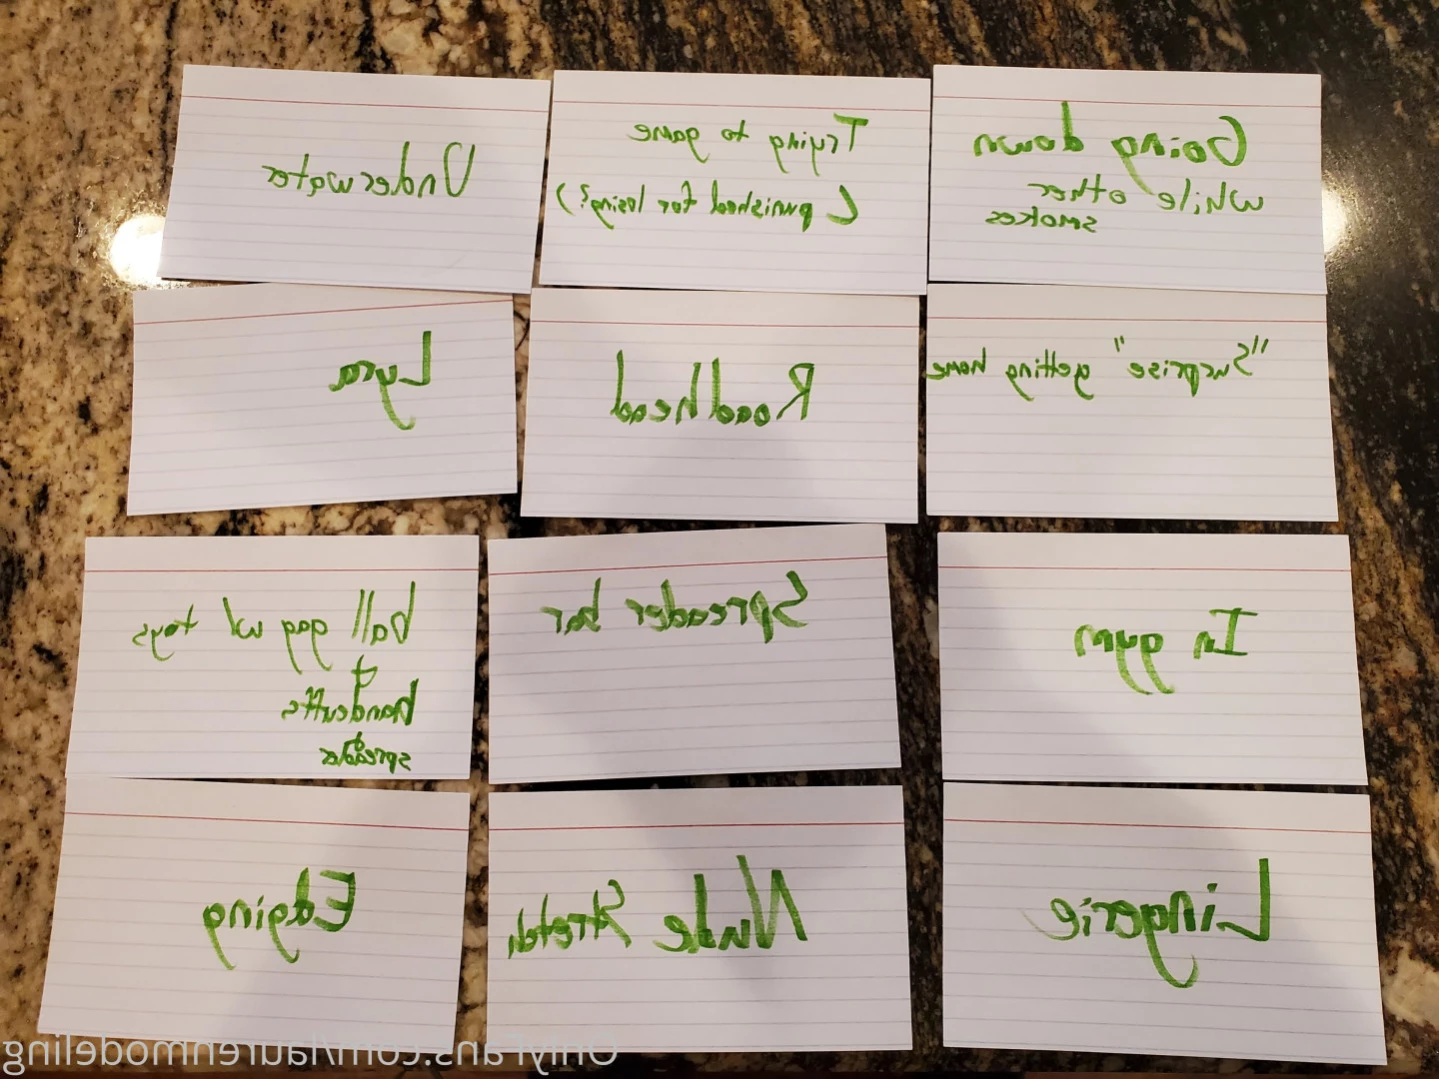 Underwater
Trying to game
(punished for losing?)
Going down
while other
smokes
Lyra
Roadhead
"Surprise" getting home
ball gag w/ toys
&
handcuffs
&
spreader
Spreader bar
In gym
Edging
Nude Stretch
Lingerie
OnlyFans.com/laurenmodeling